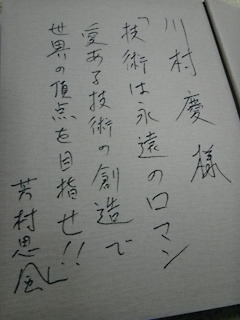 川村慶様
「技術は永遠のロマン
愛ある技術の創造で
世界の頂点を目指せ!!
芳村思風